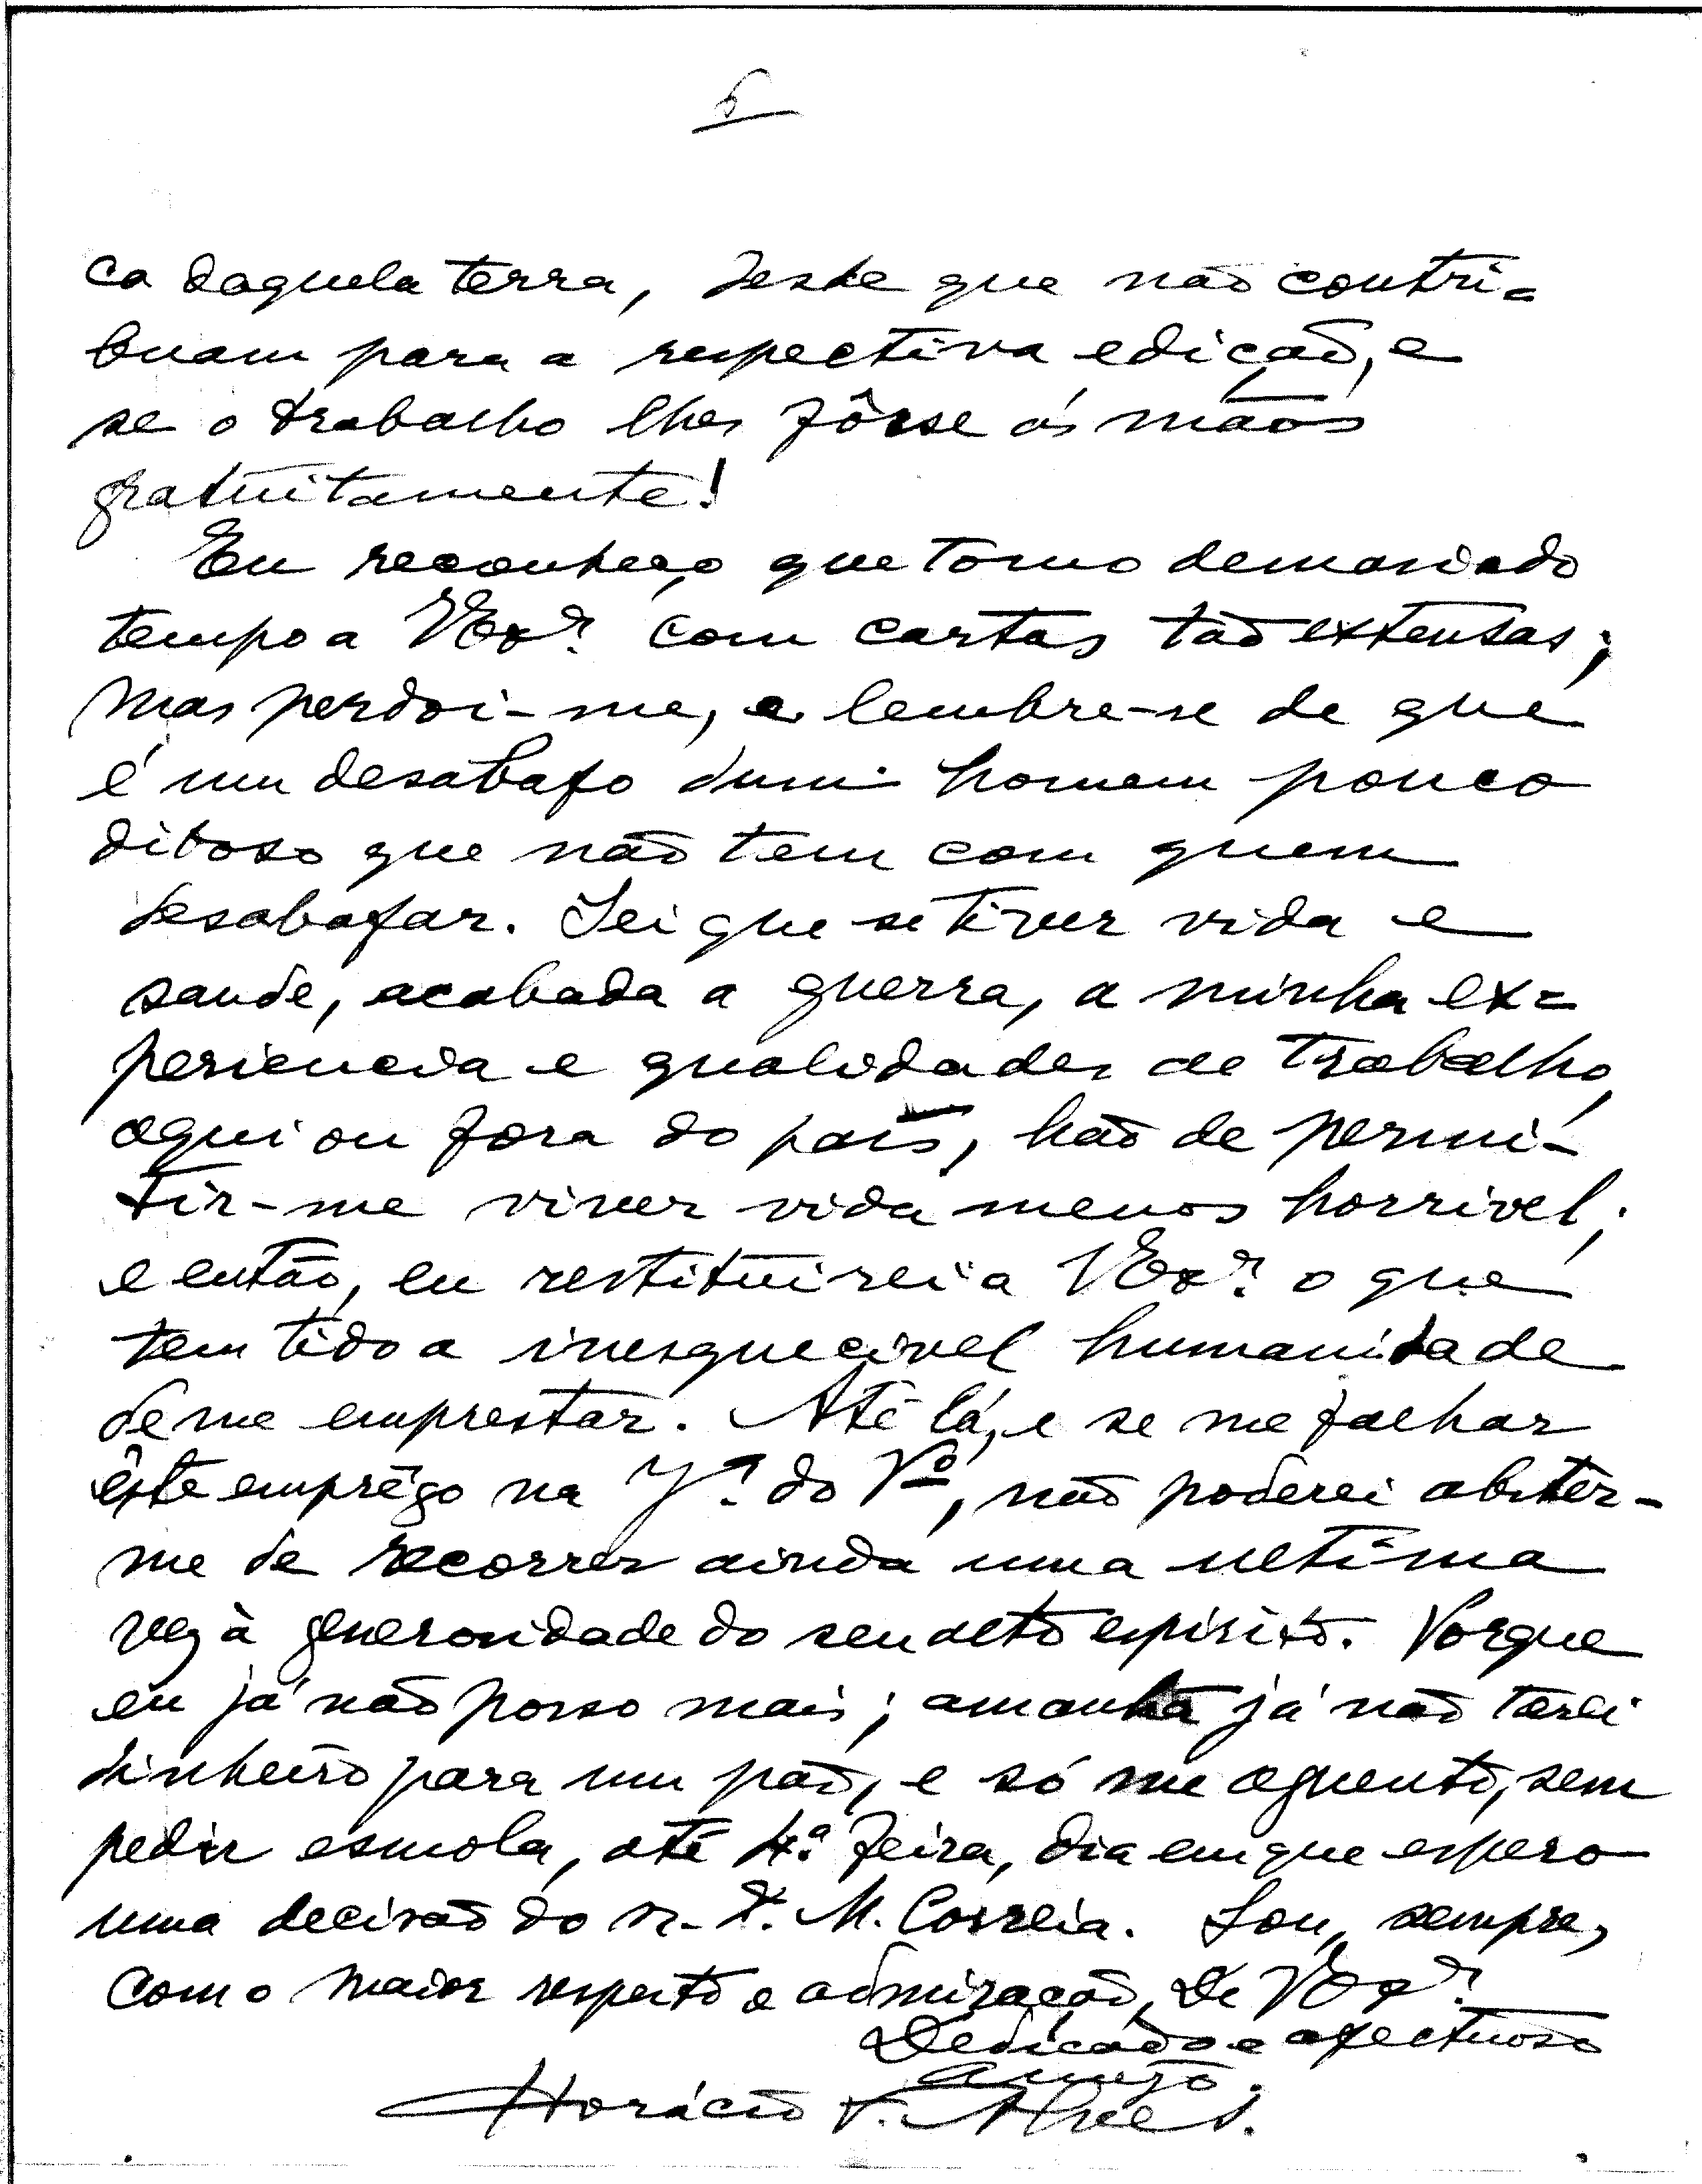 6
ca daquela terra, desde que não contri=
buam para a respectiva edição, e
se o trabalho lhes fôsse ás mãos
gratuitamente!
Eu reconheço que tomo demasiado
tempo a VExª. com cartas tão extensas;
mas perdoi-me, e lembre-se de que
é um desabafo dum homem pouco
ditoso que não tem com quem
desabafar. Sei que se tiver vida e
saude, acabada a guerra, a minha ex=
periencia e qualidades de trabalho,
aqui ou fora do país, hão de permi-
tir-me viver vida menos horrivel;
e então, eu restituirei a VExª. o que
tem tido a inesquecivel humanidade
de me emprestar. Até lá, e se me falhar
êste emprêgo na Jª. do Vº, não poderei abster-
me de recorrer ainda uma ultima
vez à generosidade do seu alto espirito. Porque
eu já não posso mais; amanhã já não terei
dinheiro para um pão, e só me aguento, sem
pedir esmola, até 4.ª feira, dia em que espero
uma decisão do sr. M. Correia. Sou, sempre,
com o maior respeito e admiração, De VExª.
Dedicado e afectuoso
amigo.
Horácio F. Alves.